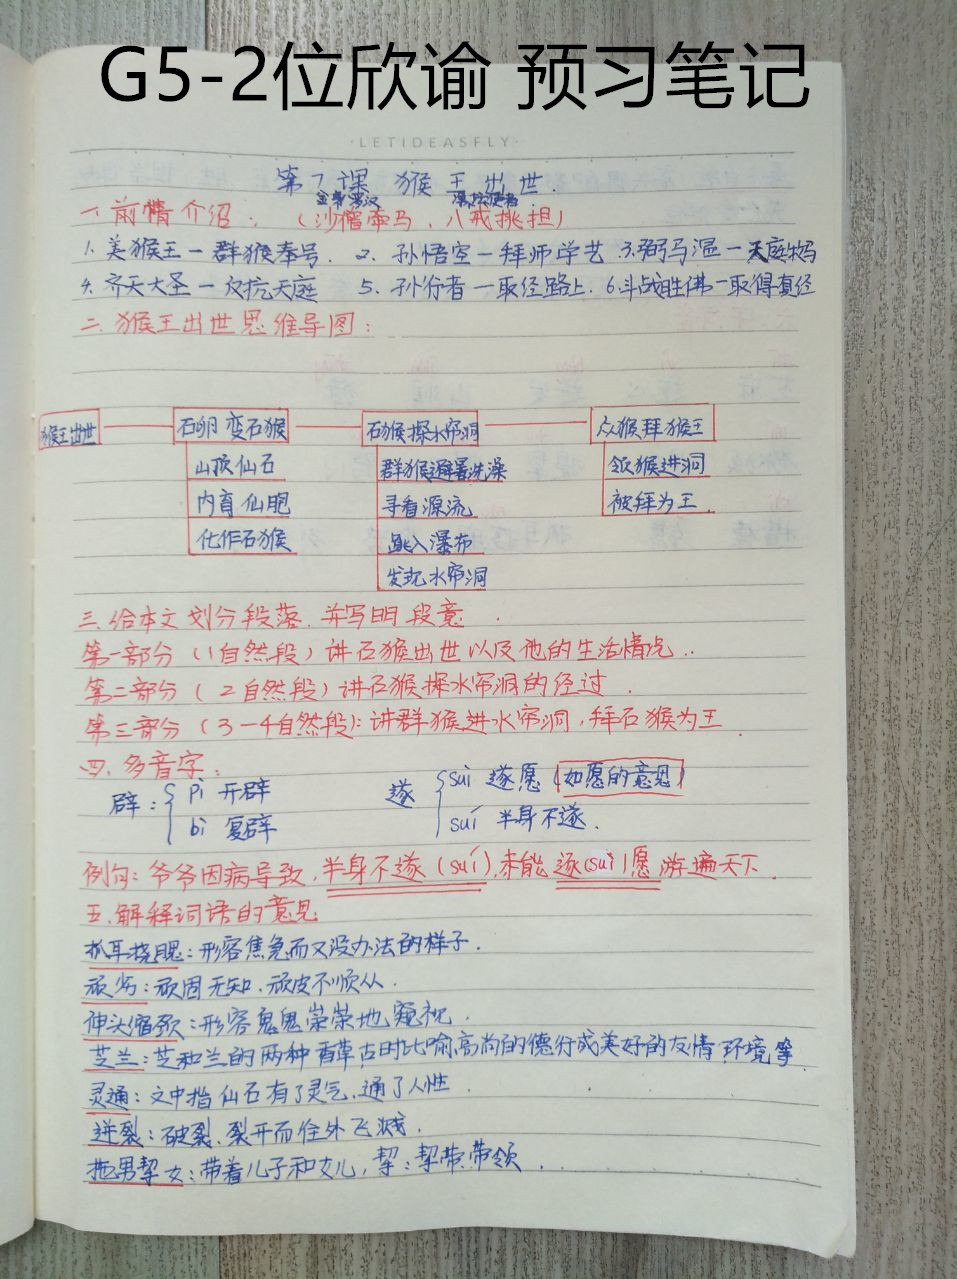 G5-2位欣谕 预习笔记
·LETIDEASFLY·
第7课 猴王出世.
金身罗汉 净坛使者
一 前情介绍: (沙僧牵马、八戒挑担)
1. 美猴王－群猴奉号. 2. 孙悟空－拜师学艺 3.弼马温－天庭牧马
4. 齐天大圣－反抗天庭 5. 孙行者－取经路上. 6.斗战胜佛－取得真经
二. 猴王出世思维导图:
猴王出世 石卵变石猴 石猴探水帘洞 众猴拜猴王
山顶仙石 群猴避暑洗澡 领猴进洞
内育仙胞 寻看源流 被拜为王.
化作石猴 跳入瀑布
发现水帘洞
三.给本文划分段落.并写明段意.
第一部分(1自然段)讲石猴出世以及他的生活情况..
第二部分(2自然段)讲石猴探水帘洞的经过.
第三部分(3－4自然段):讲群猴进水帘洞,拜石猴为王.
四.多音字:
辟: pì 开辟 遂 suì 遂愿 (如愿的意思)
bì 复辟 suí 半身不遂.
例句:爷爷因病导致,半身不遂(suí),未能遂(suì)愿游遍天下.
五.解释词语的意思
抓耳挠腮:形容焦急而又没办法的样子.
顽劣:顽固无知.顽皮不顺从.
伸头缩颈:形容鬼鬼祟祟地窥视.
芝兰:芝和兰的两种香草古时比喻高尚的德行或美好的友情.环境等.
灵通:文中指仙石有了灵气.通了人性.
迸裂:破裂.裂开而往外飞溅.
拖男挈女:带着儿子和女儿,挈:挈带.带领.